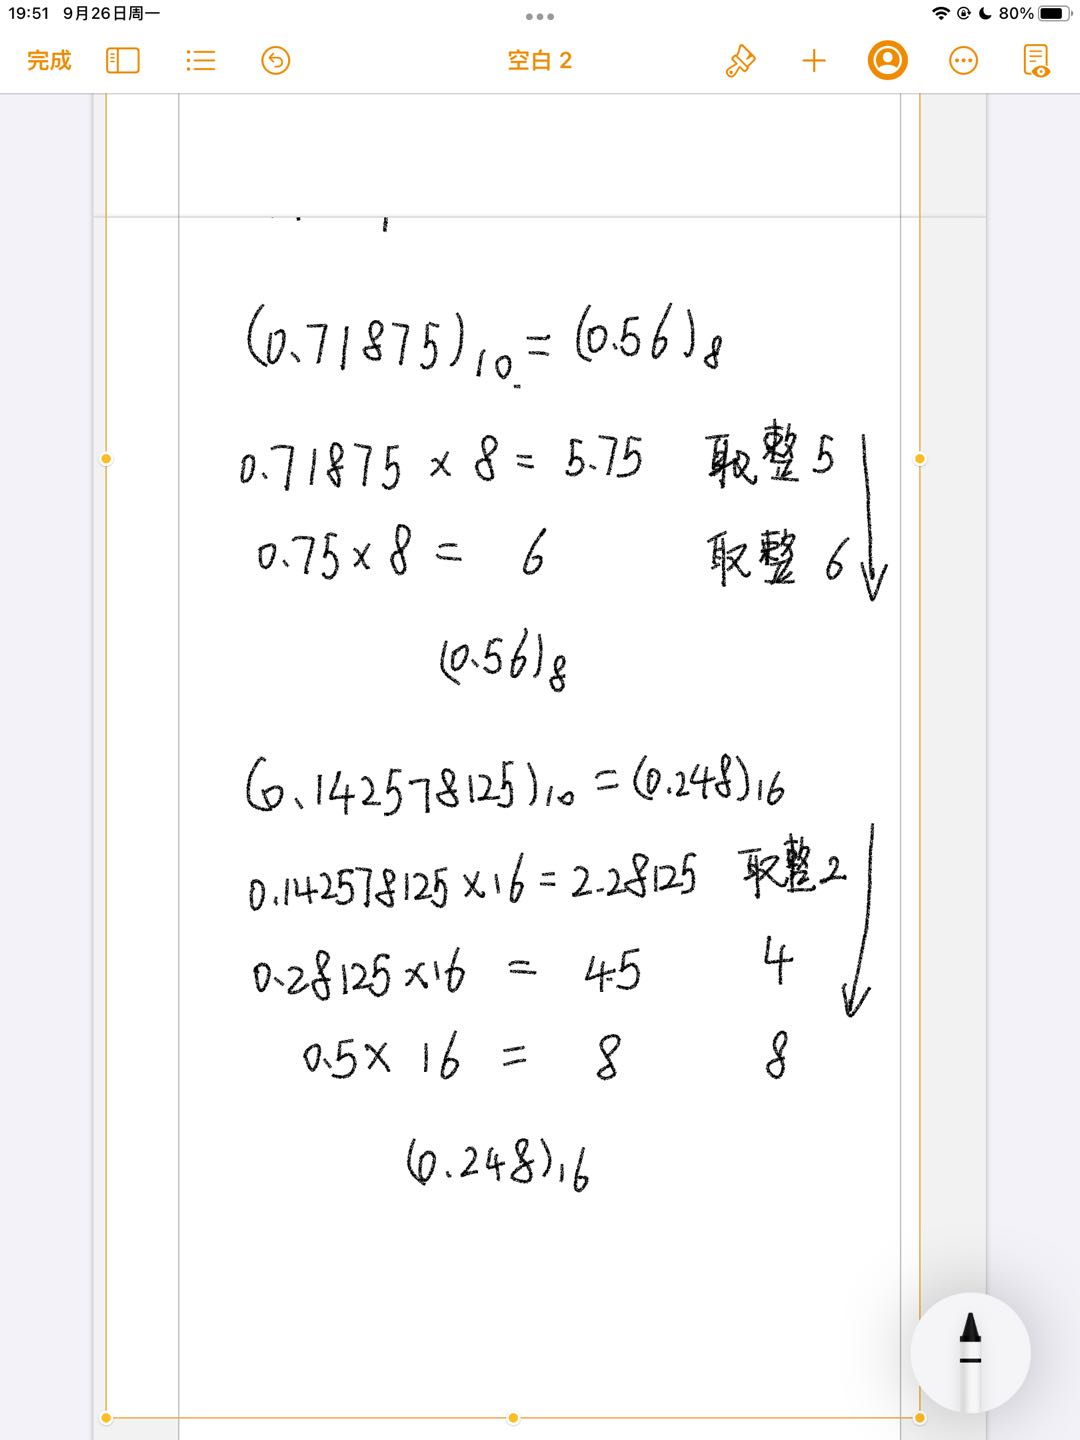 19:51 9月26日周一 80%
完成 空白 2
(0.71875)₁₀ = (0.56)₈
0.71875 × 8 = 5.75 取整 5
0.75 × 8 = 6 取整 6
(0.56)₈
(0.142578125)₁₀ = (0.248)₁₆
0.142578125 × 16 = 2.28125 取整 2
0.28125 × 16 = 4.5 4
0.5 × 16 = 8 8
(0.248)₁₆